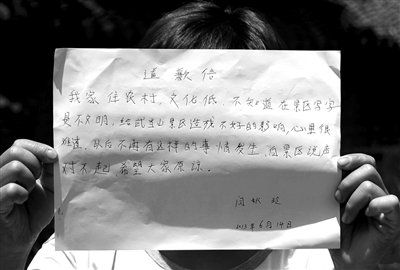 道歉信
我家住农村，文化低，不知道在景区写字
是不文明，给武当山景区造成不好的影响，心里很
难过，以后不再有这样的事情发生，向景区说声
对不起，希望大家原谅。
2013年6月14日